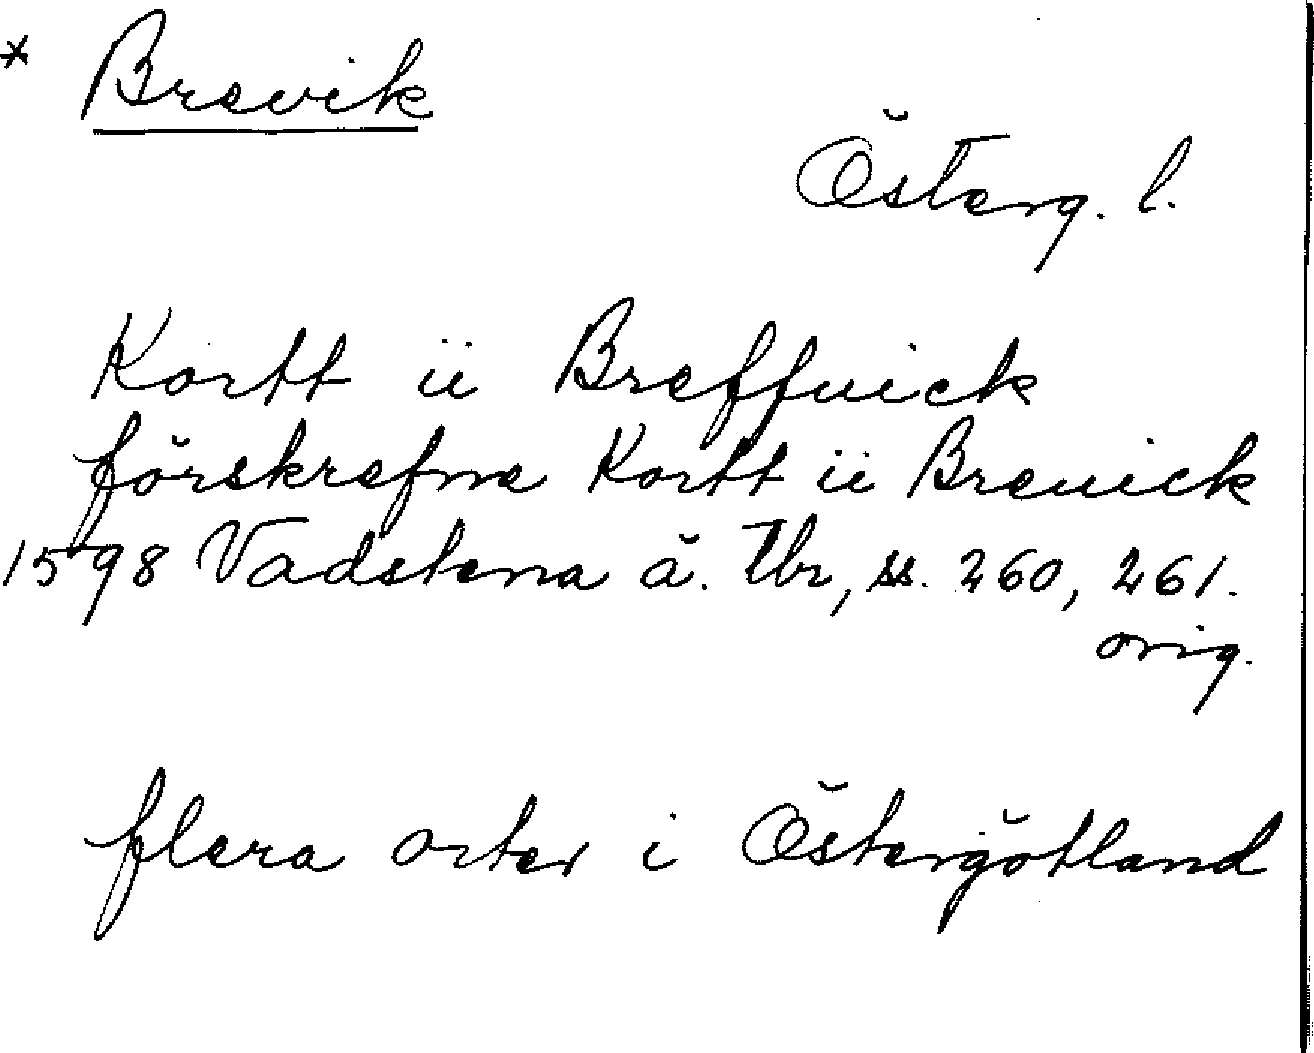 * Brevik
Österg. l.
Kortt ii Breffuick
förskrefne Kortt ii Breuick
1598 Vadstena ä. Tbr, ss. 260, 261.
orig.
flera orter i Östergötland